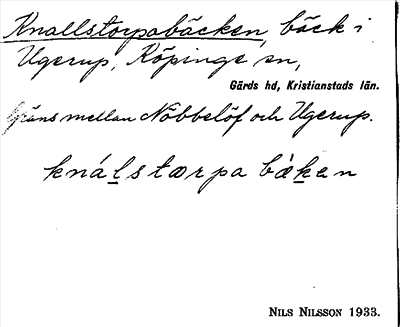 Knallstorpabäcken, bäck i
Ugerup, Köpinge sn,
Gärds hd, Kristianstads län.
Gräns mellan Nöbbelöf och Ugerup.
knálstærpa bæ̀ken
NILS NILSSON 1933.